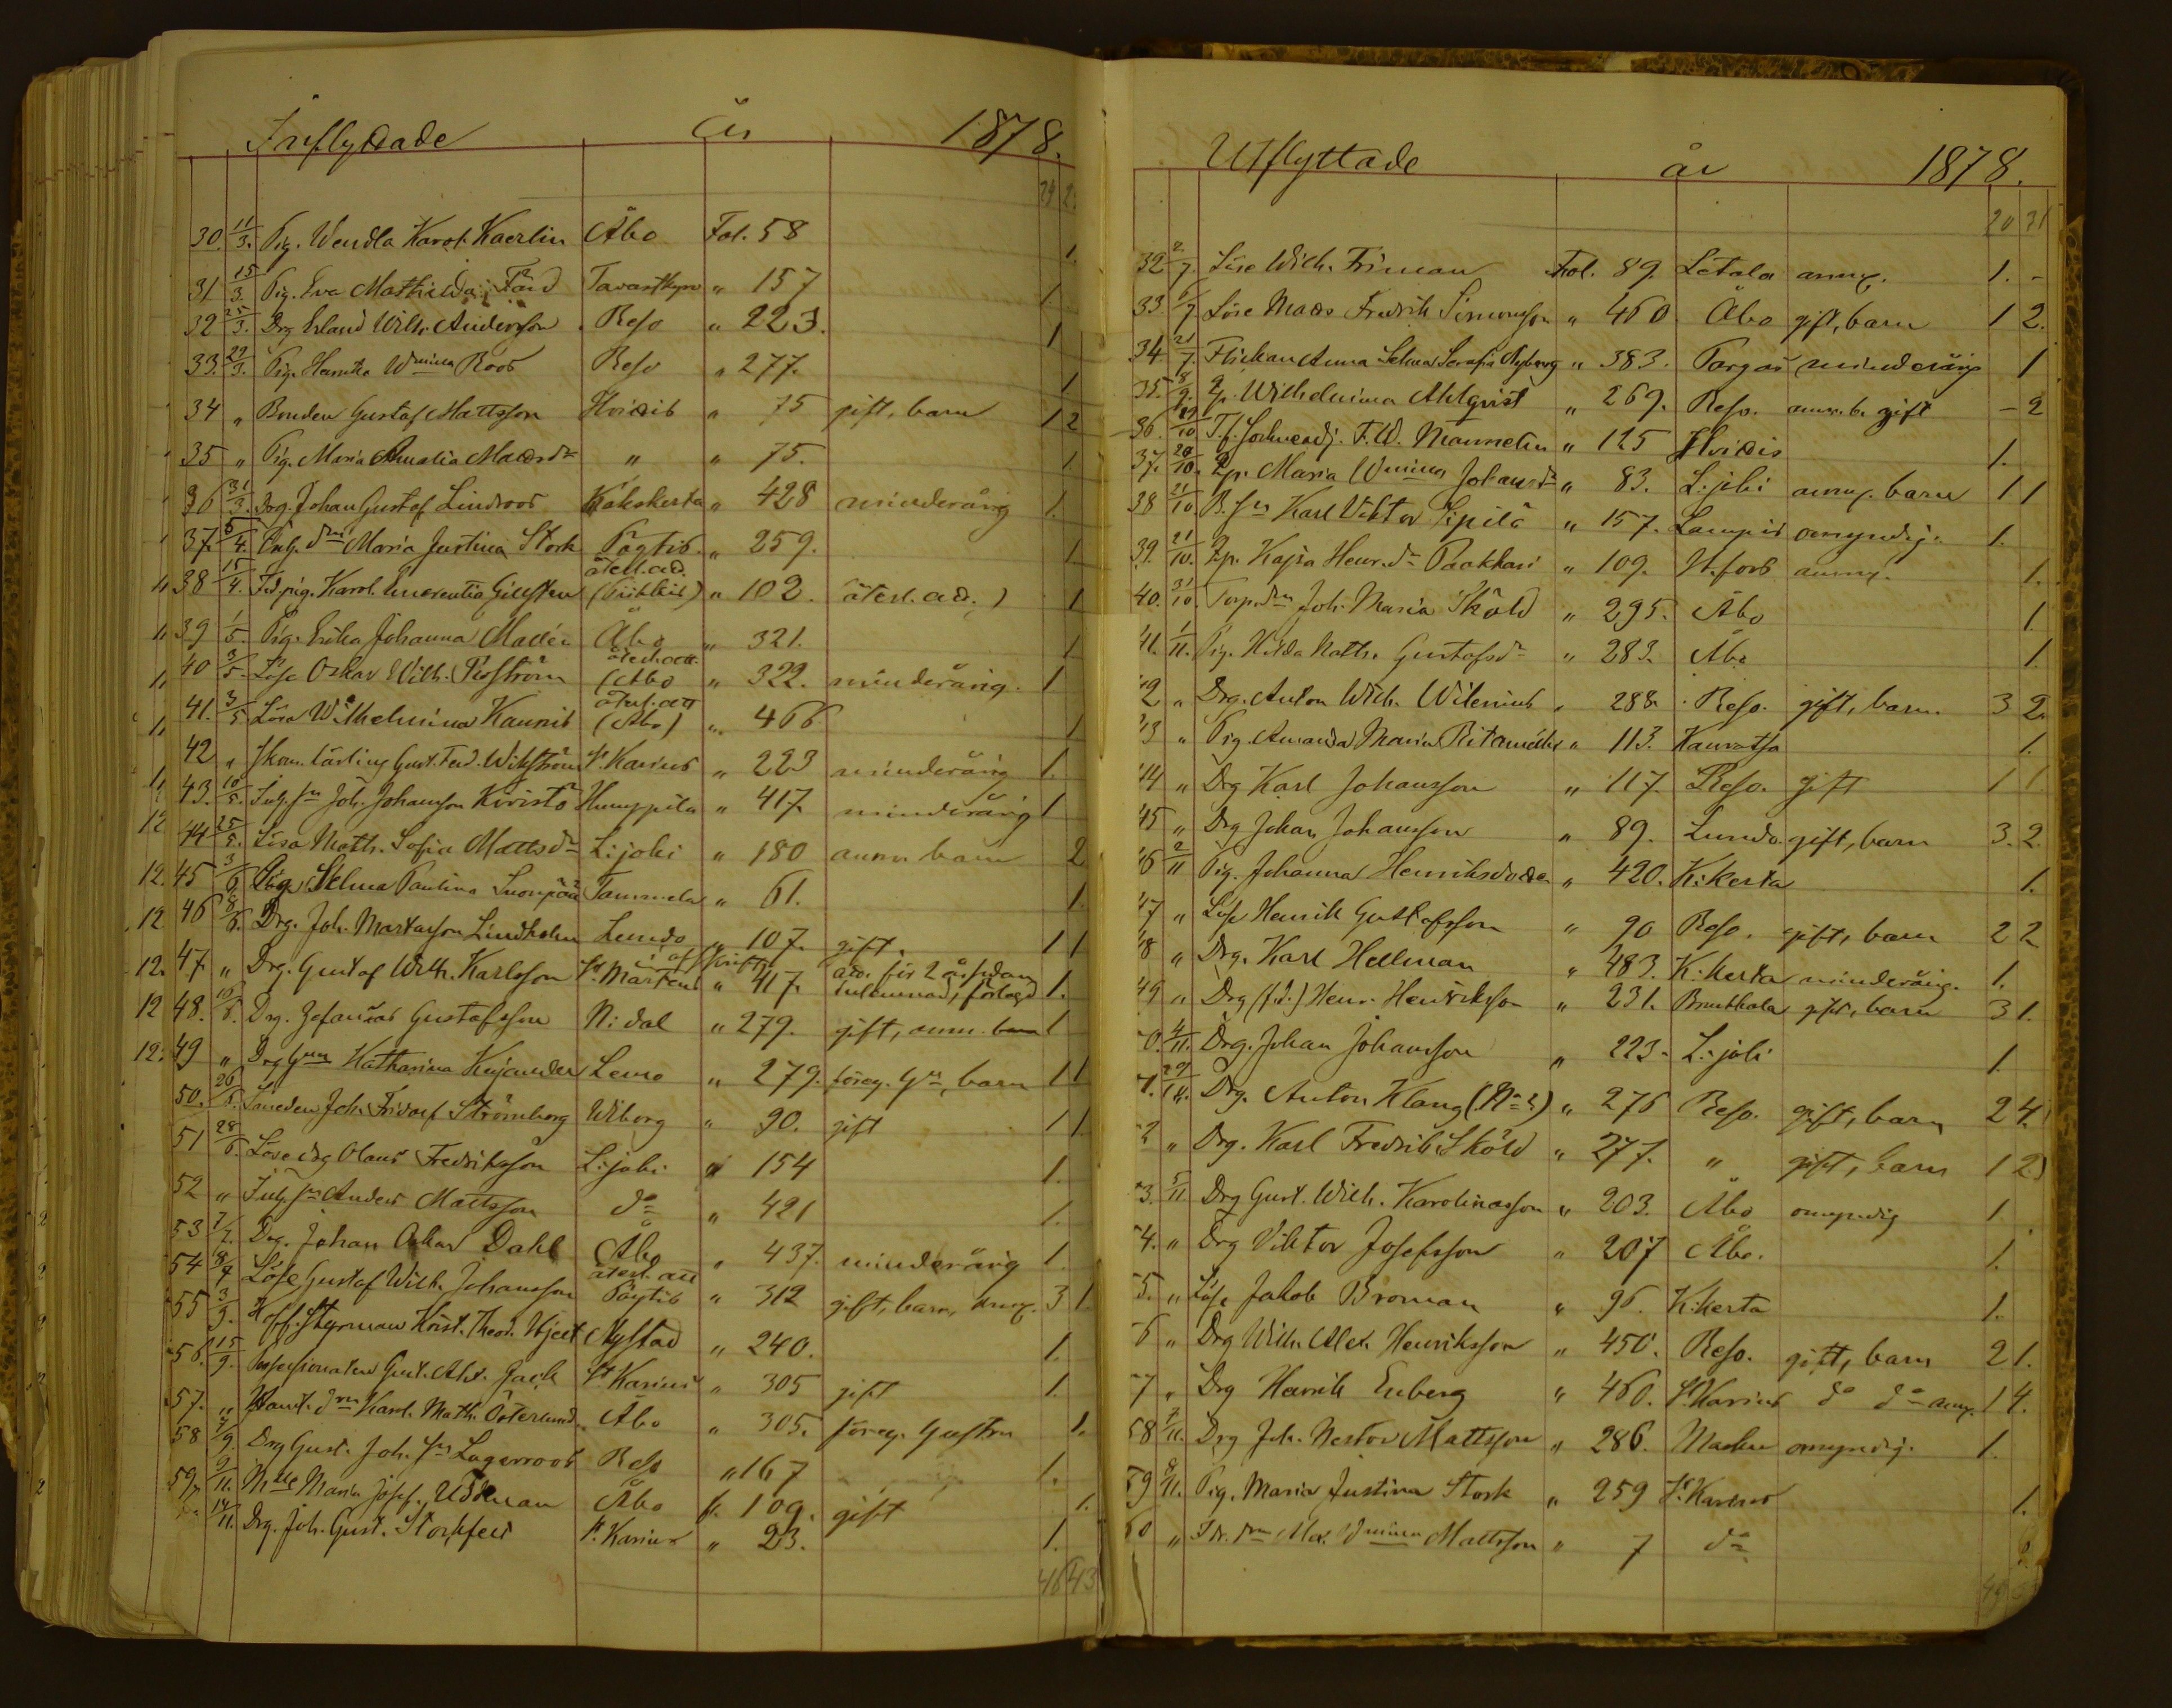 Inflyttade år 1878.
30. 11/3. Pig. Wendla Karol. Kaerlin Åbo Fol. 58 1.
31 15/3. Pig. Eva Mathilda Tavastkyro " 157 1
32 25/3. Drg Erland Wilh. Andersson Reso " 223. 1
33. 29/3. Pig. Henrika Wmina Roos Reso " 277. 1
34 " Bonden Gustaf Mattsson Hvidis " 75 gift, barn 1 2
35 " Pig. Maria Amalia Madsdr " " 75. 1
36 31/3. Drg. Johan Gustaf Lindroos Kakskerta " 428 minderårig 1.
37. 5/4. Inh. dr Maria Justina Stork Pöytis " 259. 1
38 15/4. Fd. pig. Karol. (Piikkis) återl. att. " 102. återl. att.) 1
39 1/5. Pig. Erika Johanna Åbo " 321. 1
40 3/5. Löse Oskar Wilh. (Åbo återl. att. " 322. minderårig. 1
41. 3/5. Lösa Wilhelmina Kaunis (Åbo) återl. att " 466 1
42 " Skom. lärling Gust. Ferd. Wikström St Karins " 223 minderårig 1.
43. 10/5. Inh. sn Joh. Johansson Kivistö Humppila " 417. minderårig 1
44 25/5. Lösa Math. Sofia Mattsdr L:joki " 180 barn 2
45 3/6 Pig. Selma Paulina Tammela " 61. 1.
46 8/6. Drg. Joh. Lindholm Lundo " 107. gift. 1 1
47. " Drg. Gustaf Wilh. Karlsson St Mårtens " 417. för 2 år sedan 1.
48. 10/6. Drg. Gustafsson N:dal " 279. gift, 1
49 " Drg Katharina Kajander Lemo " 279. föreg. barn 1 1
50. 26/6. Joh. Fridolf Strömberg Wiborg " 90. gift 1 1
51 28/6. Löse drg Olaus Fredriksson L:joki " 154 1.
52 " Inh. sn Anders Mattsson do " 421 1.
53 7/7. Drg. Johan Oskar Dahl Åbo " 437. minderårig 1.
54 8/9 Löse Gustaf Wilh. Johansson Pöytis återl. att " 312 gift, barn, 3 1
55 3/9. Styrman Krist. Theod. Hjelt Nystad " 240. 1.
56. 15/9. Possessionaten Gust. Alex. St Karins " 305 gift 1.
57. " Karol. Math. Österlund Åbo " 305. föreg. hustru 1.
58 Drg Gust. Joh. sn Lagerroos Reso " 167 1.
59 9/11. Maria Josef. Uddman Åbo f. 109. gift 1.
14/11. Drg. Joh. Gust. St. Karins " 23. 1.
46 43
Utflyttade år 1878.
20 31
32 2/7. Löse Wilh. Friman Fol. 89. Letala 1. -
33. 7. Löse Mads Fredrik Simonsson " 460. Åbo gift, barn 1 2.
34 21/7. Flickan Anna Selma Serafia Nyberg " 383. Pargas minderårig 1
35. 8/9. Wilhelmina Ahlqvist " 269. Reso. gift - 2
36. 10 F. W. Mannelin " 125 Hvidis 1.
37. 20/10. Maria Wmina Johansdr " 83. L:joki barn 1 1
38 21/10. B. sn Karl Viktor Sipilä " 157. Lampis omyndig. 1.
39. 21/10. Kajsa Henr.dr Paakkari " 109. H.fors 1.
40. 31/10. Torp. dr Joh. Maria Sköld " 295. Åbo 1.
41. 1/11. Pig. Hilda Math. Gustafsdr " 283. Åbo 1.
42 " Drg. Anton Wilh. Wilenius " 288. Reso. gift, barn. 3 2.
43 " Pig. Amanda Maria Ritamäki " 113. Kauvatsa 1.
44 " Drg Karl Johansson " 117. Reso. gift 1 1
45 " Drg Johan Johansson " 89. Lundo. gift, barn 3. 2.
46 2/11 Pig. Johanna Henriksdotter " 420. K:kerta 1.
47 " Löse Henrik Gustafsson " 90 Reso. gift, barn 2 2
48 " Drg. Karl Hellman " 483. K:kerta minderårig. 1.
49 " Drg (f.d.) Henr. Henriksson " 231. Bruntkala gift, barn 3 1.
50. 4/11. Drg. Johan Johansson " 223. L:joki 1
51. Drg. Anton Klang " 276 Reso. gift, barn 2 4.
52 " Drg. Karl Fredrik Sköld " 277. " gift, barn 1 2
53. 5/11. Drg Gust. Wilh. Karolinasson " 203. Åbo omyndig 1.
54. " Drg Viktor Josefsson " 207 Åbo. 1.
55. " Löse Jakob Broman " 96. K:kerta 1.
56 " Drg Wilh. Alex. Henriksson " 450. Reso. gift, barn 2 1.
57 " Drg Henrik Enberg " 460. St Karins do do 1 4.
58 7/11. Drg Joh. Nestor Mattsson " 286. Masku omyndig. 1.
59 8/11. Pig. Maria Justina Stork " 259 St Karins 1.
60 " Mattsson " 7 do